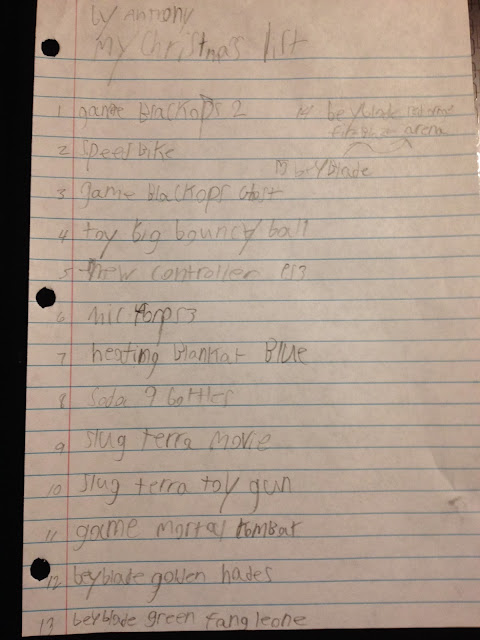 by Anthony
My Christmas list
1 game Blackops 2
2 speed bike
3 game Blackops Ghost
4 toy big bouncy ball
5 new controller ps3
6 mic for ps3
7 heating blankat Blue
8 Soda 9 bottles
9 slug terra movie
10 slug terra toy gun
11 game mortal kombat
12 beyblade golden hades
13 beyblade green fang leone
14 beyblade
arena
15 beyblade